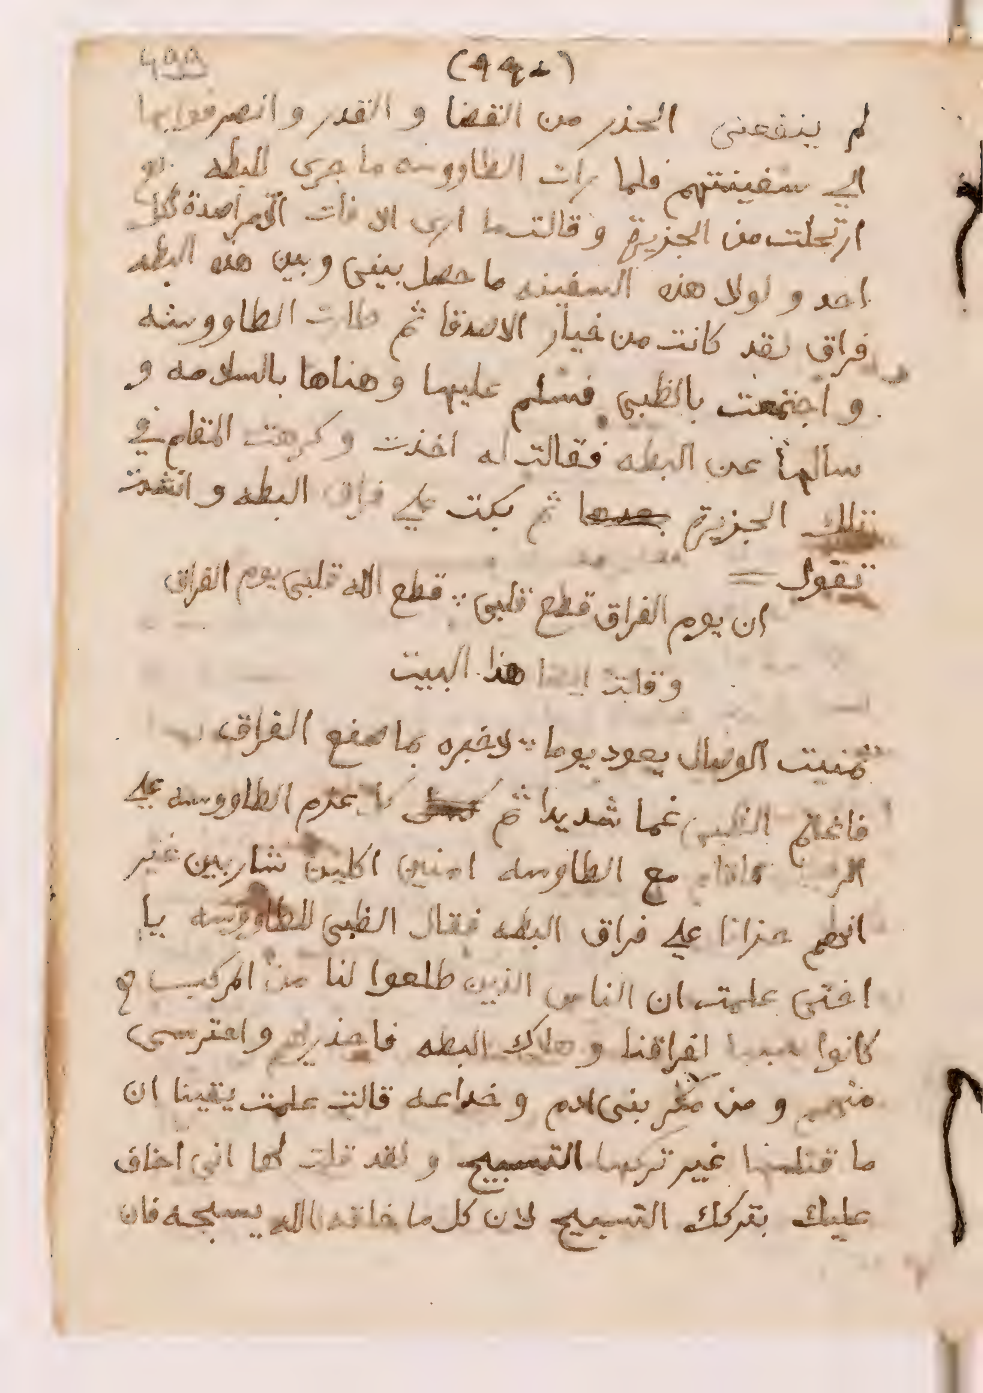 (٩٩٠)
لم ينفعنى الحذر من القضا و القدر و انصرفوا بها
الي سفينتهم فلما رات الطاووسه ما جرى للبطه
ارتحلت من الجزيرة و قالت ما ارى الافات الا مراصدة لكل
احد و لولا هذه السفينه ما حصل بينى و بين هذه البطه
فراق لقد كانت من خيار الاصدقا ثم طارت الطاووسه
و اجتمعت بالظبى فسلم عليها و هناها بالسلامه و
سالها عن البطه فقالت له اخذت و كرهت المقام في
تلك الجزيرة بعدها ثم بكت علي فراق البطه و انشدت
تقول
ان يوم الفراق قطع قلبى ∴ قطع الله قلبى يوم الفراق
و قالت ايضا هذا البيت
تمنيت الوصال يعود يوما ∴ لاخبره بما صنع الفراق
فاغتم الظبى غما شديدا ثم عزم الطاووسه علي
مع الطاوسه امنين اكلين شاربين غير
انهم حزانا علي فراق البطه فقال الظبى للطاووسه يا
اختى علمت ان الناس الذين طلعوا لنا من المركب
كانوا سببا لفراقنا و هلاك البطه فاحذريهم و احترسى
منهم و من مكر بنى ادم و خداعه قالت علمت يقينا ان
ما قتلها غير تركها التسبيح و لقد قلت لها انى اخاف
عليك بتركك التسبيح لان كل ما خلقه الله يسبحه فان